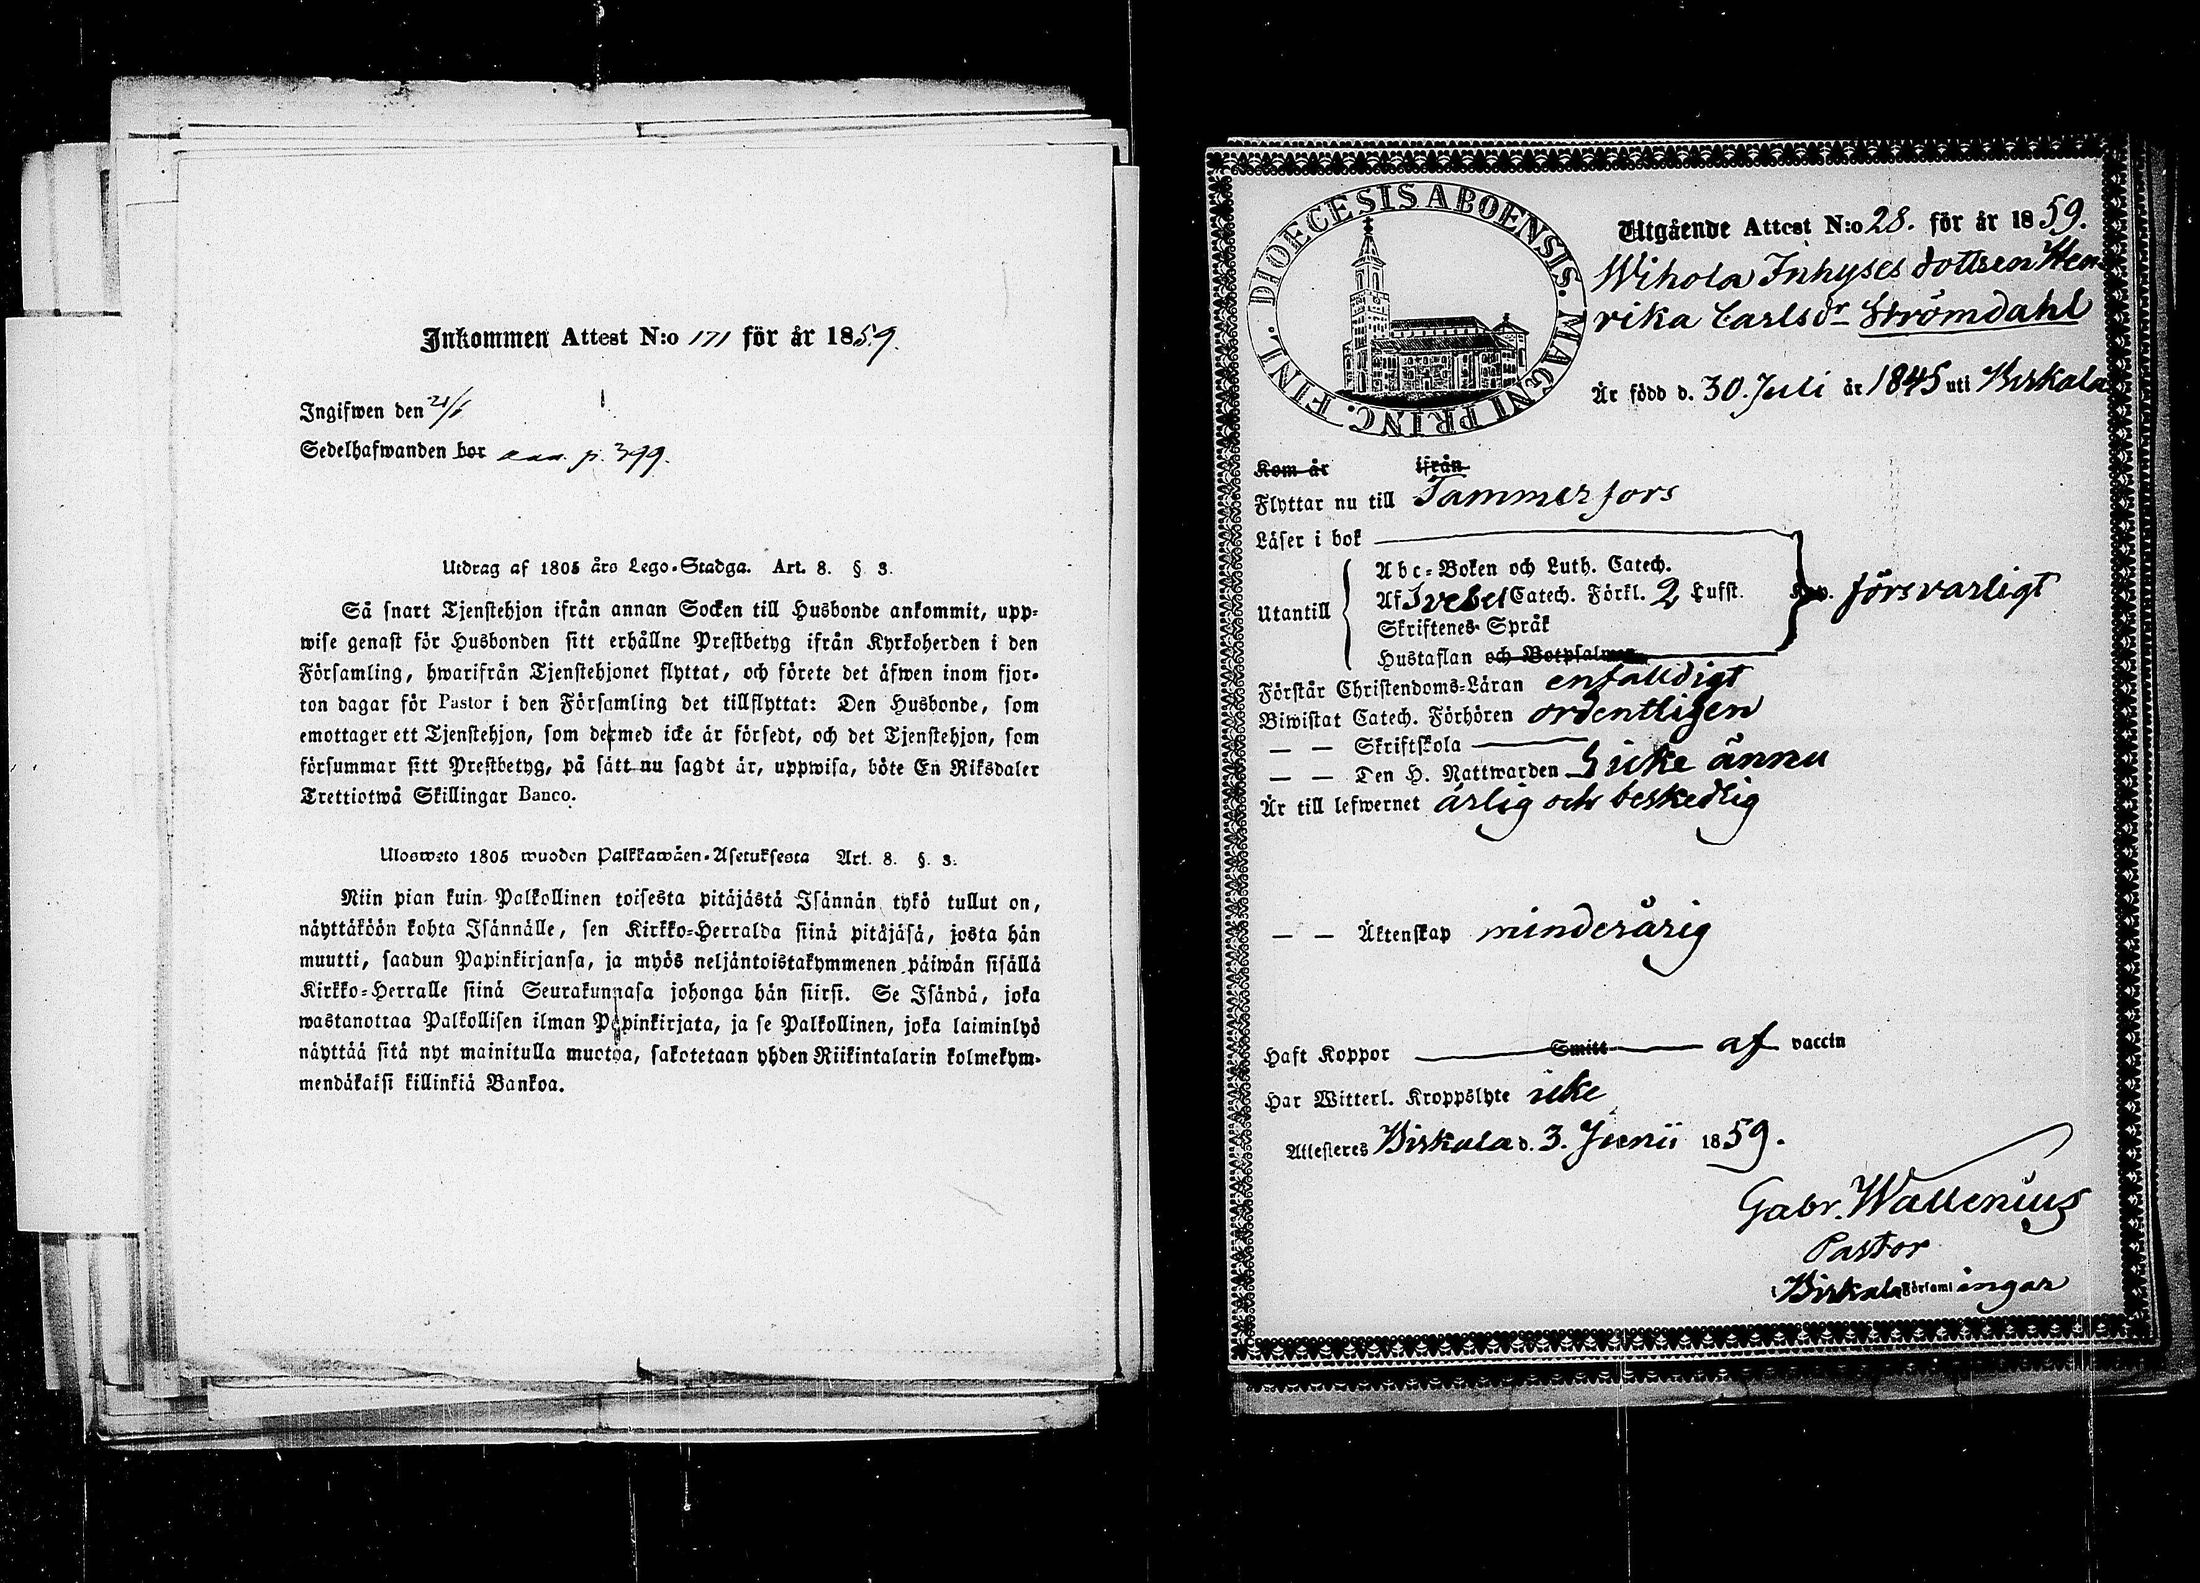 Inkommen Attest N:o 171 för år 1859.
Ingifwen den 21/6
Sedelhafwanden bor p. 399.
Utdrag af 1805 års Lego-Stadga. Art. 8. § 3.
Så snart Tjenstehjon ifrån annan Socken till Husbonde ankommit, upp-
wise genast för Husbonden sitt erhållne Prestbetyg ifrån Kyrkoherden i den
Församling, hwarifrån Tjenstehjonet flyttat, och förete det äfwen inom fjor-
ton dagar för Pastor i den Församling det tillflyttat: Den Husbonde, som
emottager ett Tjenstehjon, som dermed icke är försedt, och det Tjenstehjon, som
försummar sitt Prestbetyg, på sätt nu sagdt är, uppwisa, böte En Riksdaler
Trettiotwå Skillingar Banco.
Ulosweto 1805 wuoden Palkkawäen-Asetuksesta Art. 8. §. 3.
Niin pian kuin Palkollinen toisesta pitäjästä Isännän tykö tullut on,
näyttäköön kohta Isännälle, sen Kirkko-Herralda siinä pitäjäsä, josta hän
muutti, saadun Papinkirjansa, ja myös neljäntoistakymmenen päiwän sisällä
Kirkko-Herralle siinä Seurakunnasa johonga hän siirsi. Se Isändä, joka
wastanottaa Palkollisen ilman Papinkirjata, ja se Palkollinen, joka laiminlyö
näyttää sitä nyt mainitulla muotoa, sakotetaan yhden Riikintalarin kolmekym-
mendäkaksi killinkiä Bankoa.
DIOECESIS ABOENSIS. MAGNI PRINC. FINL.
Utgående Attest N:o 28. för år 1859.
Wihola Inhyses dottren Hen-
rika Carlsdr Strömdahl
Är född d. 30. Juli år 1845 uti Birkala
Kom år ifrån
Flyttar nu till Tammerfors
Läser i bok
Utantill Abc-Boken och Luth. Catech.
Af Svebel Catech. Förkl. 2 Lufst. försvarligt
Skriftenes Språk
Hustaflan och Botpsalmen
Förstår Christendoms-Läran enfalldigt
Biwistat Catech. Förhören ordentligen
— — Skriftskola
— — Den H. Nattwarden icke ännu
Är till lefwernet ärlig och beskedlig
— — Äktenskap minderårig
Haft Koppor Smitt af vaccin
Har Witterl. Kroppslyte icke
Attesteres Birkala d. 3. Junii 1859.
Gabr. Wallenius
Pastor
i Birkala Församlingar